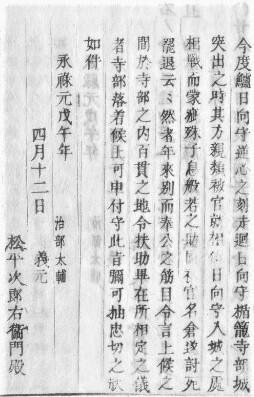 今度鱸日向守逆心之刻走廻日向守楯籠寺部城
突出之時其方親類被官就相〓日向守入城之處
相戰而蒙疵殊子息般若之助同被官名倉遂討死
罷退云々然者年来別而奉公之筋目令言上候之
間於寺部之内百貫之地令扶助畢在所相定之儀
者寺部落着候上可申付守此旨彌可抽忠切之狀
如件
永祿元戊午年
四月十二日
治部太輔
義元
松平次郎右衞門殿